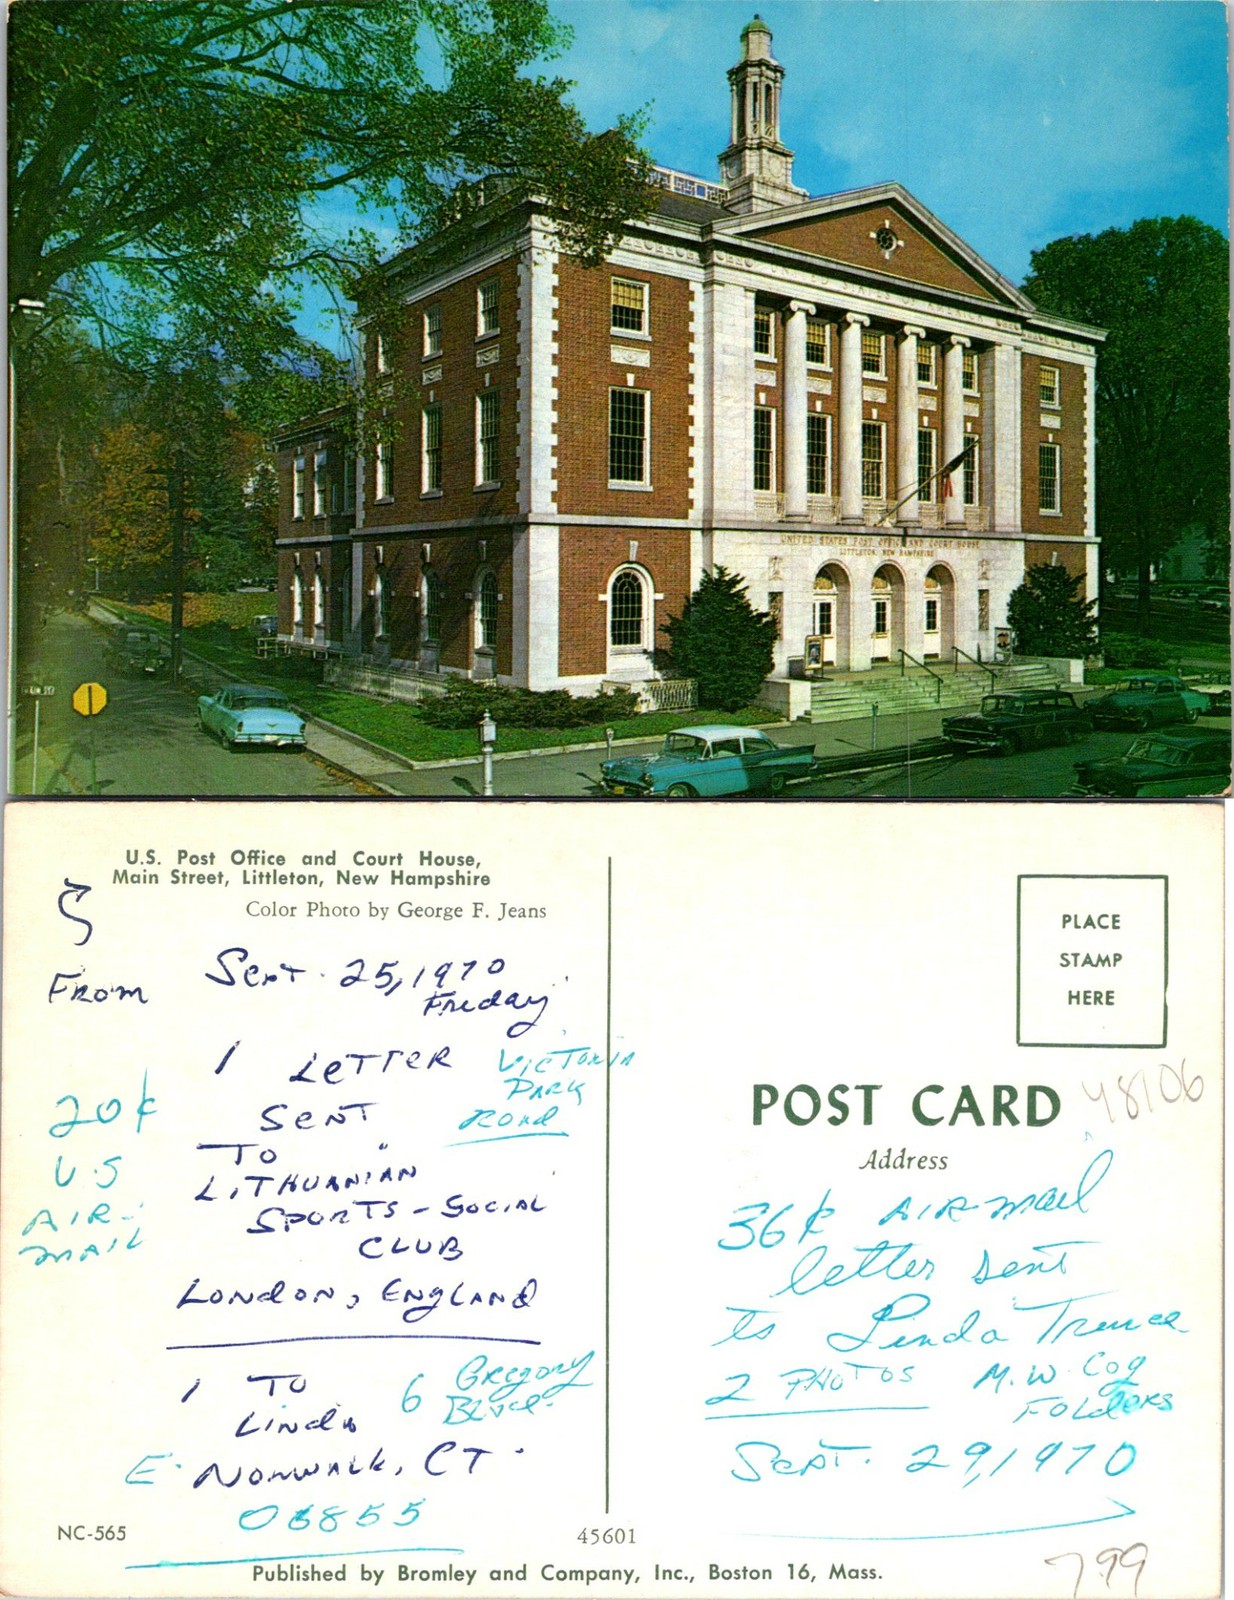 UNITED STATES OF AMERICA
UNITED STATES POST OFFICE AND COURT HOUSE
LITTLETON, NEW HAMPSHIRE
U.S. Post Office and Court House,
Main Street, Littleton, New Hampshire
Color Photo by George F. Jeans
From
Sept. 25, 1970
Friday
1 LETTER
SENT
TO
LITHUANIAN
SPORTS - SOCIAL
CLUB
LONDON, ENGLAND
VICTORIA
PARK
ROAD
20¢
U.S
AIR-
MAIL
1 TO
LINDA
E. NORWALK, CT.
06855
6 Gregory
Blvd.
NC-565
45601
Published by Bromley and Company, Inc., Boston 16, Mass.
PLACE
STAMP
HERE
POST CARD
Address
48106
36¢ AIR-mail
letter sent
to Linda
2 PHOTOS
M.W. Cog
FOLDERS
Sept. 29, 1970
7.99